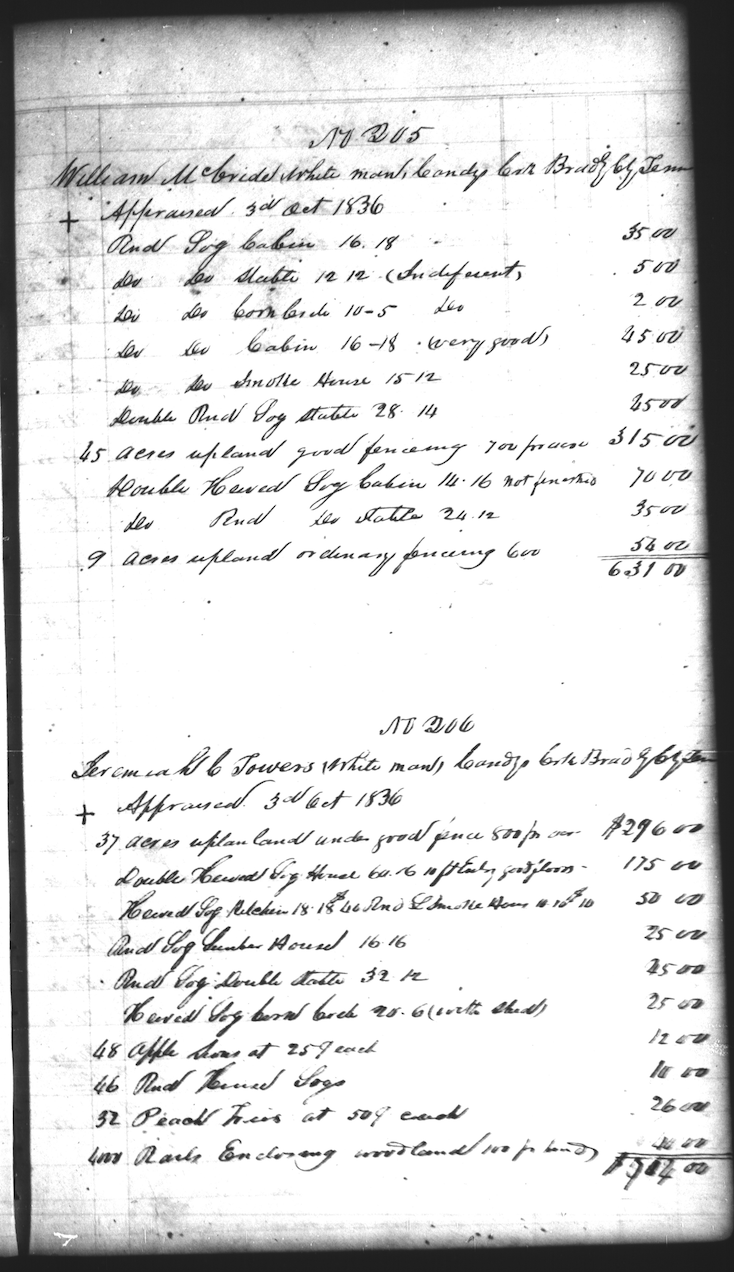 No 205
William McBride (White man) Candys Crk Bradly Cty Tenn
+ Appraised 3d Oct 1836
Rnd Log Cabin 16.18 35 00
Do Do Stable 12 12 (Indiferent) 5 00
Do Do Corn Crib 10-5 Do 2 00
Do Do Cabin 16-18 (very good) 45 00
Do Do Smoke House 15 12 25 00
Double Rnd Log Stable 28.14 45 00
45 acres upland good fenceing 700 pr acre 315 00
Double Hewed Log Cabin 14.16 not finished 70 00
Do Rnd Do Stable 24.12 35 00
9 acres upland ordinary fenceing 600 54 00
631 00
No 206
Jeremiah C Towers (White man) Candys Crk Bradly Cty Tenn
+ Appraised 3d Oct 1836
37 acres uplan land under good fence 800 pr acr $296 00
Double Hewed Log House 60.16 10 ft Entry good floors 175 00
Hewed Log Kitchen 18.18 $40 Rnd L Smoke Hous 10.10 $10 50 00
Rnd Log Lumber House 16.16 25 00
Rnd Log Double Stable 32 12 45 00
Hewed Log Corn Crib 20.6 (with Shed) 25 00
48 Apple trees at 25¢ each 12 00
46 Rnd House Logs 10 00
32 Peach Trees at 50¢ each 26 00
4000 Rails Enclosing woodland 100 pr hund 40 00
$704 00